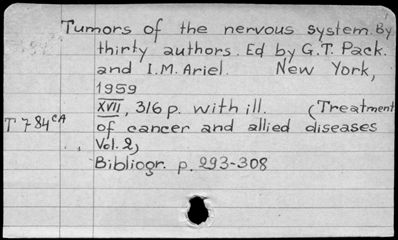 Tumors of the nervous system. By
thirty authors. Ed by G.T. Pack.
and I.M. Ariel. New York,
1959
XVII, 316 p. with ill. (Treatment
T 784 CA
of cancer and allied diseases
Vol. 2)
Bibliogr. p. 293-308